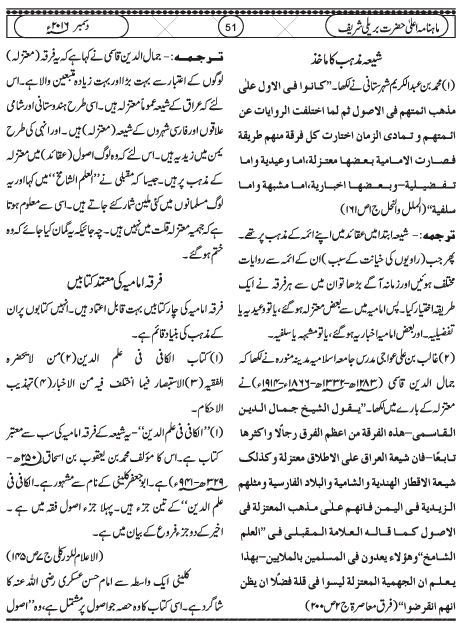 ماہنامہ اعلیٰ حضرت بریلی شریف
51
دسمبر ۲۰۱۶ء
شیعہ مذہب کا ماخذ
(۱) محمد بن عبدالکریم شہرستانی نے لکھا۔ "کانوا فی الاول علیٰ
مذہب ائمتھم فی الاصول ثم لما اختلفت الروایات عن
ائمتھم و تمادی الزمان اختارت کل فرقۃ منھم طریقۃ
فصارت الامامیۃ بعضھا معتزلۃ، اما وعیدیۃ واما
تفضیلیۃ–وبعضھا اخباریۃ، اما مشبھۃ واما
سلفیۃ" (الملل والنحل ج۱ص۱۶۱)
ترجمہ:- شیعہ ابتدا میں عقائد میں اپنے ائمہ کے مذہب پر تھے۔
پھر جب (راویوں کی خیانت کے سبب) ان کے ائمہ سے روایات
مختلف ہوئیں اور زمانہ آگے بڑھا تو ان میں سے ہر فرقہ نے ایک
طریقہ اختیار کیا۔ پس امامیہ میں سے بعض معتزلہ ہو گئے، یا تو وعیدیہ یا
تفضیلیہ۔ اور بعض امامیہ اخباریہ ہو گئے، یا تو مشبہہ یا سلفیہ۔
(۲) غالب بن علی عواجی مدرس جامعہ اسلامیہ مدینہ منورہ نے لکھا کہ
جمال الدین قاسمی (۱۲۸۳ھ-۱۳۳۲ھ-۱۸۶۶ء-۱۹۱۴ء) نے
معتزلہ کے بارے میں لکھا۔ "یقول الشیخ جمال الدین
القاسمی–ھذہ الفرقۃ من اعظم الفرق رجالًا واکثرھا
تابعًا–فان شیعۃ العراق علی الاطلاق معتزلۃ وکذلک
شیعۃ الاقطار الھندیۃ والشامیۃ والبلاد الفارسیۃ ومثلھم
الزیدیۃ فی الیمن فانھم علیٰ مذھب المعتزلۃ فی
الاصول کما قالہ العلامۃ المقبلی فی "العلم
الشامخ" وھؤلاء یعدون فی المسلمین بالملایین–بھذا
یعلم ان الجھمیۃ المعتزلۃ لیسوا فی قلۃ فضلًا ان یظن
انھم انقرضوا" (فرق معاصرۃ ج۲ص۲۰۰)
ترجمہ:- جمال الدین قاسمی نے کہا ہے کہ یہ فرقہ (معتزلہ)
لوگوں کے اعتبار سے بہت بڑا اور بہت زیادہ متبعین والا ہے۔ اس
لئے کہ عراق کے شیعہ عموماً معتزلہ ہیں۔ اسی طرح ہندوستانی اور شامی
علاقوں اور فارسی شہروں کے شیعہ (معتزلہ) ہیں۔ اور انہی کی طرح
یمن میں زیدیہ ہیں۔ اس لئے کہ وہ لوگ اصول (عقائد) میں معتزلہ
کے مذہب پر ہیں۔ جیسا کہ مقبلی نے "العلم الشامخ" میں کہا اور یہ
لوگ مسلمانوں میں کئی ملین شمار کئے جاتے ہیں۔ اسی سے معلوم ہوتا
ہے کہ جہمیہ معتزلہ قلت میں نہیں ہیں۔ چہ جائیکہ یہ گمان کیا جائے کہ وہ
ختم ہو گئے۔
فرقہ امامیہ کی معتمد کتابیں
فرقہ امامیہ کی چار کتابیں بہت قابل اعتماد ہیں۔ انہیں کتابوں پر ان
کے مذہب کی بنیاد قائم ہے۔
(۱) کتاب الکافی فی علم الدین (۲) من لا یحضرہ
الفقیہ (۳) الاستبصار فیما اختلف فیہ من الاخبار (۴) تہذیب
الاحکام۔
(۱) "الکافی فی علم الدین"- یہ شیعہ کے فرقہ امامیہ کی سب سے معتبر
کتاب ہے۔ اس کا مؤلف محمد بن یعقوب بن اسحاق (۲۵۰ھ-
۳۲۹ھ-۹۴۱ء) ہے۔ ابو جعفر کلینی کے نام سے مشہور ہے۔ الکافی فی علم
الدین" کے تین جزء ہیں۔ پہلا جزء اصول فقہ میں ہے۔
اخیر کے دو جزء فروع کے بیان میں ہے۔
(الاعلام للزرکلی ج۷ص۱۴۵)
کلینی ایک واسطہ سے امام حسن عسکری رضی اللہ عنہ کا
شاگرد ہے۔ اس کتاب کا وہ حصہ جو اصول پر مشتمل ہے، وہ "اصول